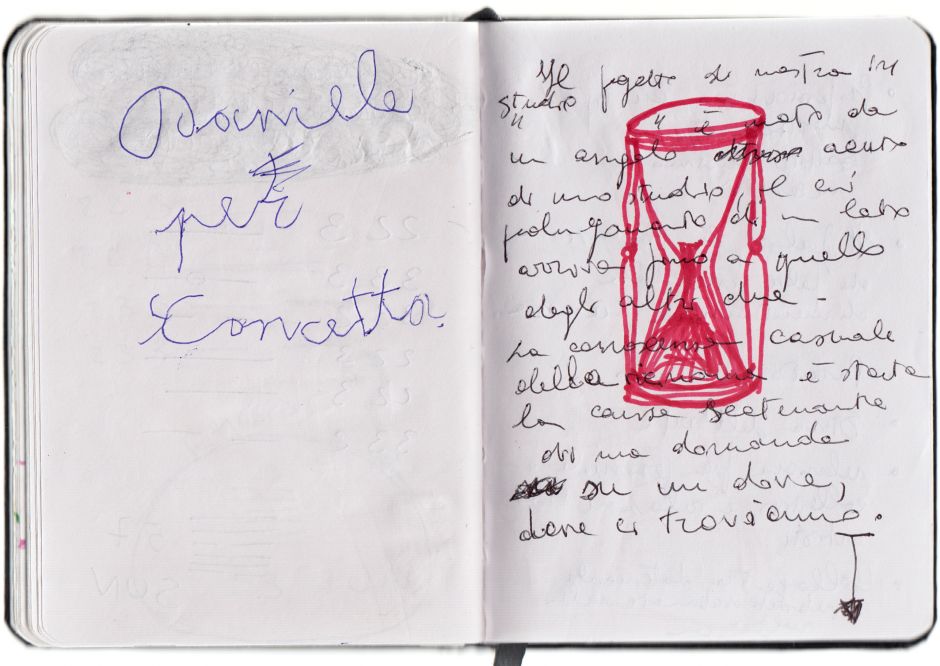 Daniele
per
Concetta
Il progetto di mostra in
studio
" " è nato da
un angolo acuto
di uno studio il cui
prolungamento di un lato
arriva fino a quello
degli altri due -
La conoscenza casuale
della romana è stata
la causa scatenante
di una domanda
su un dove,
dove ci troviamo.